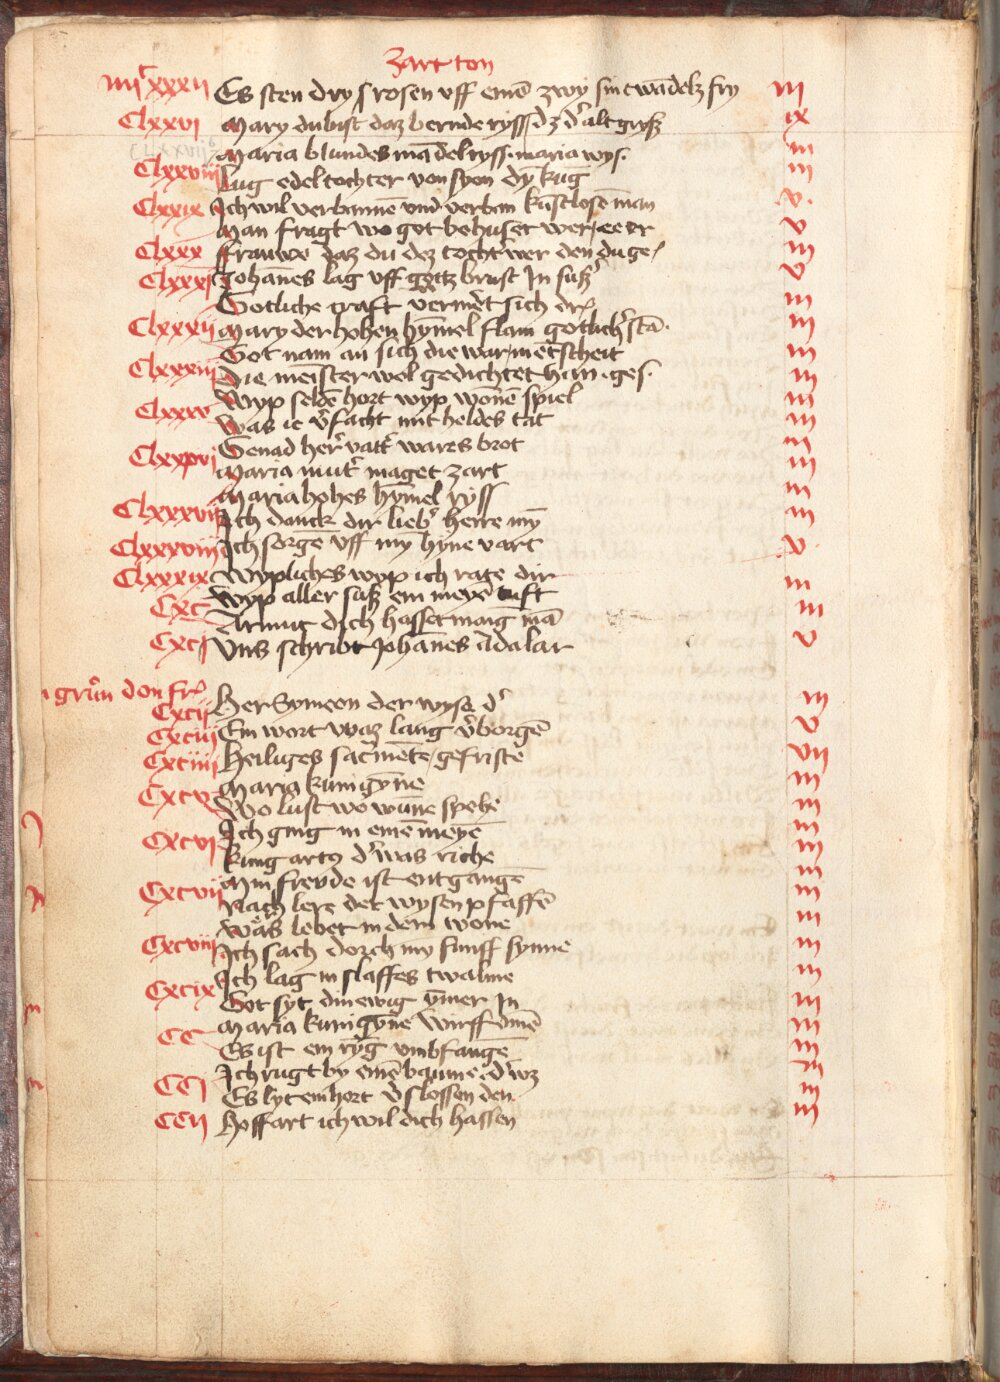 Zart ton
iiiicxxxii Es sten dry rosen uff einē zwy sint wādelz fry iii
Clxxvi Mary du bist daz bernde ryss dz d' alt gryss ix
Maria blundes mādelryss maria wys iii
Clxxviii Lug edel tochter von syon dy kūg iii
Clxxix Ich wil verbannē und verban kūstlosē man v
Man fragt wo got behuset wer ee er v
Clxxx ffrauwe daz du dez tocht' wer den duge iii
Clxxxi Johānes lag uff gottz brust In suss v
Gotliche craft verniet sich iii
Clxxxii Mary der hohen hȳmel flam gotlich' stā iii
Got nam an sich die war mētscheit iii
Clxxxiii Die meister wol gedichtet han ges iii
Wyp seldē hort wyp wonē spiel iii
Clxxxv Was ie v'facht mit heldes tat iii
Genad her' vatt' wares brot iii
Clxxxvi Maria mut' maget zart iii
Maria hohes hȳmel ryss iii
Clxxxvii Ich danck dir lieb' herre mȳ iii
Clxxxviii Ich sorgē uff mȳ hyne vart v
Clxxxix Wypliches wyp ich rate dir iii
Cxc Wyp aller suss ein meyē tuft
Armut dich hasset maig mā iii
Cxci Uns schribt Johānes adalar v
grůn don fr'
Cxcii Her Symeon der wyse d' iii
Cxciii Ein wort waz lang v'borgē v
Cxciiii Heiliges sacmēte gefriste vii
Maria kunigȳne iii
Cxcv Wo lust wo wūne spehe iii
Ich ging in einē meyē iii
Cxcvi kung artus d' was riche iii
Min freude ist entgangē iii
Cxcvii Nach lere der wysen pfaffē iii
Was lebet in dem wone iii
Cxcviii Ich sach dorch my funff synne iii
Ich lag in slaffes twalme iii
Cxcix Got syt din ewig ȳmer In iii
Maria kunigȳne wirff dinē iii
CC Es ist ein ryg umbfangē iii
Ich rugt by einē baume d' wz iii
CCi Es lyt ein hort v'slossen den iii
CCii Hoffart ich wil dich hassen iii